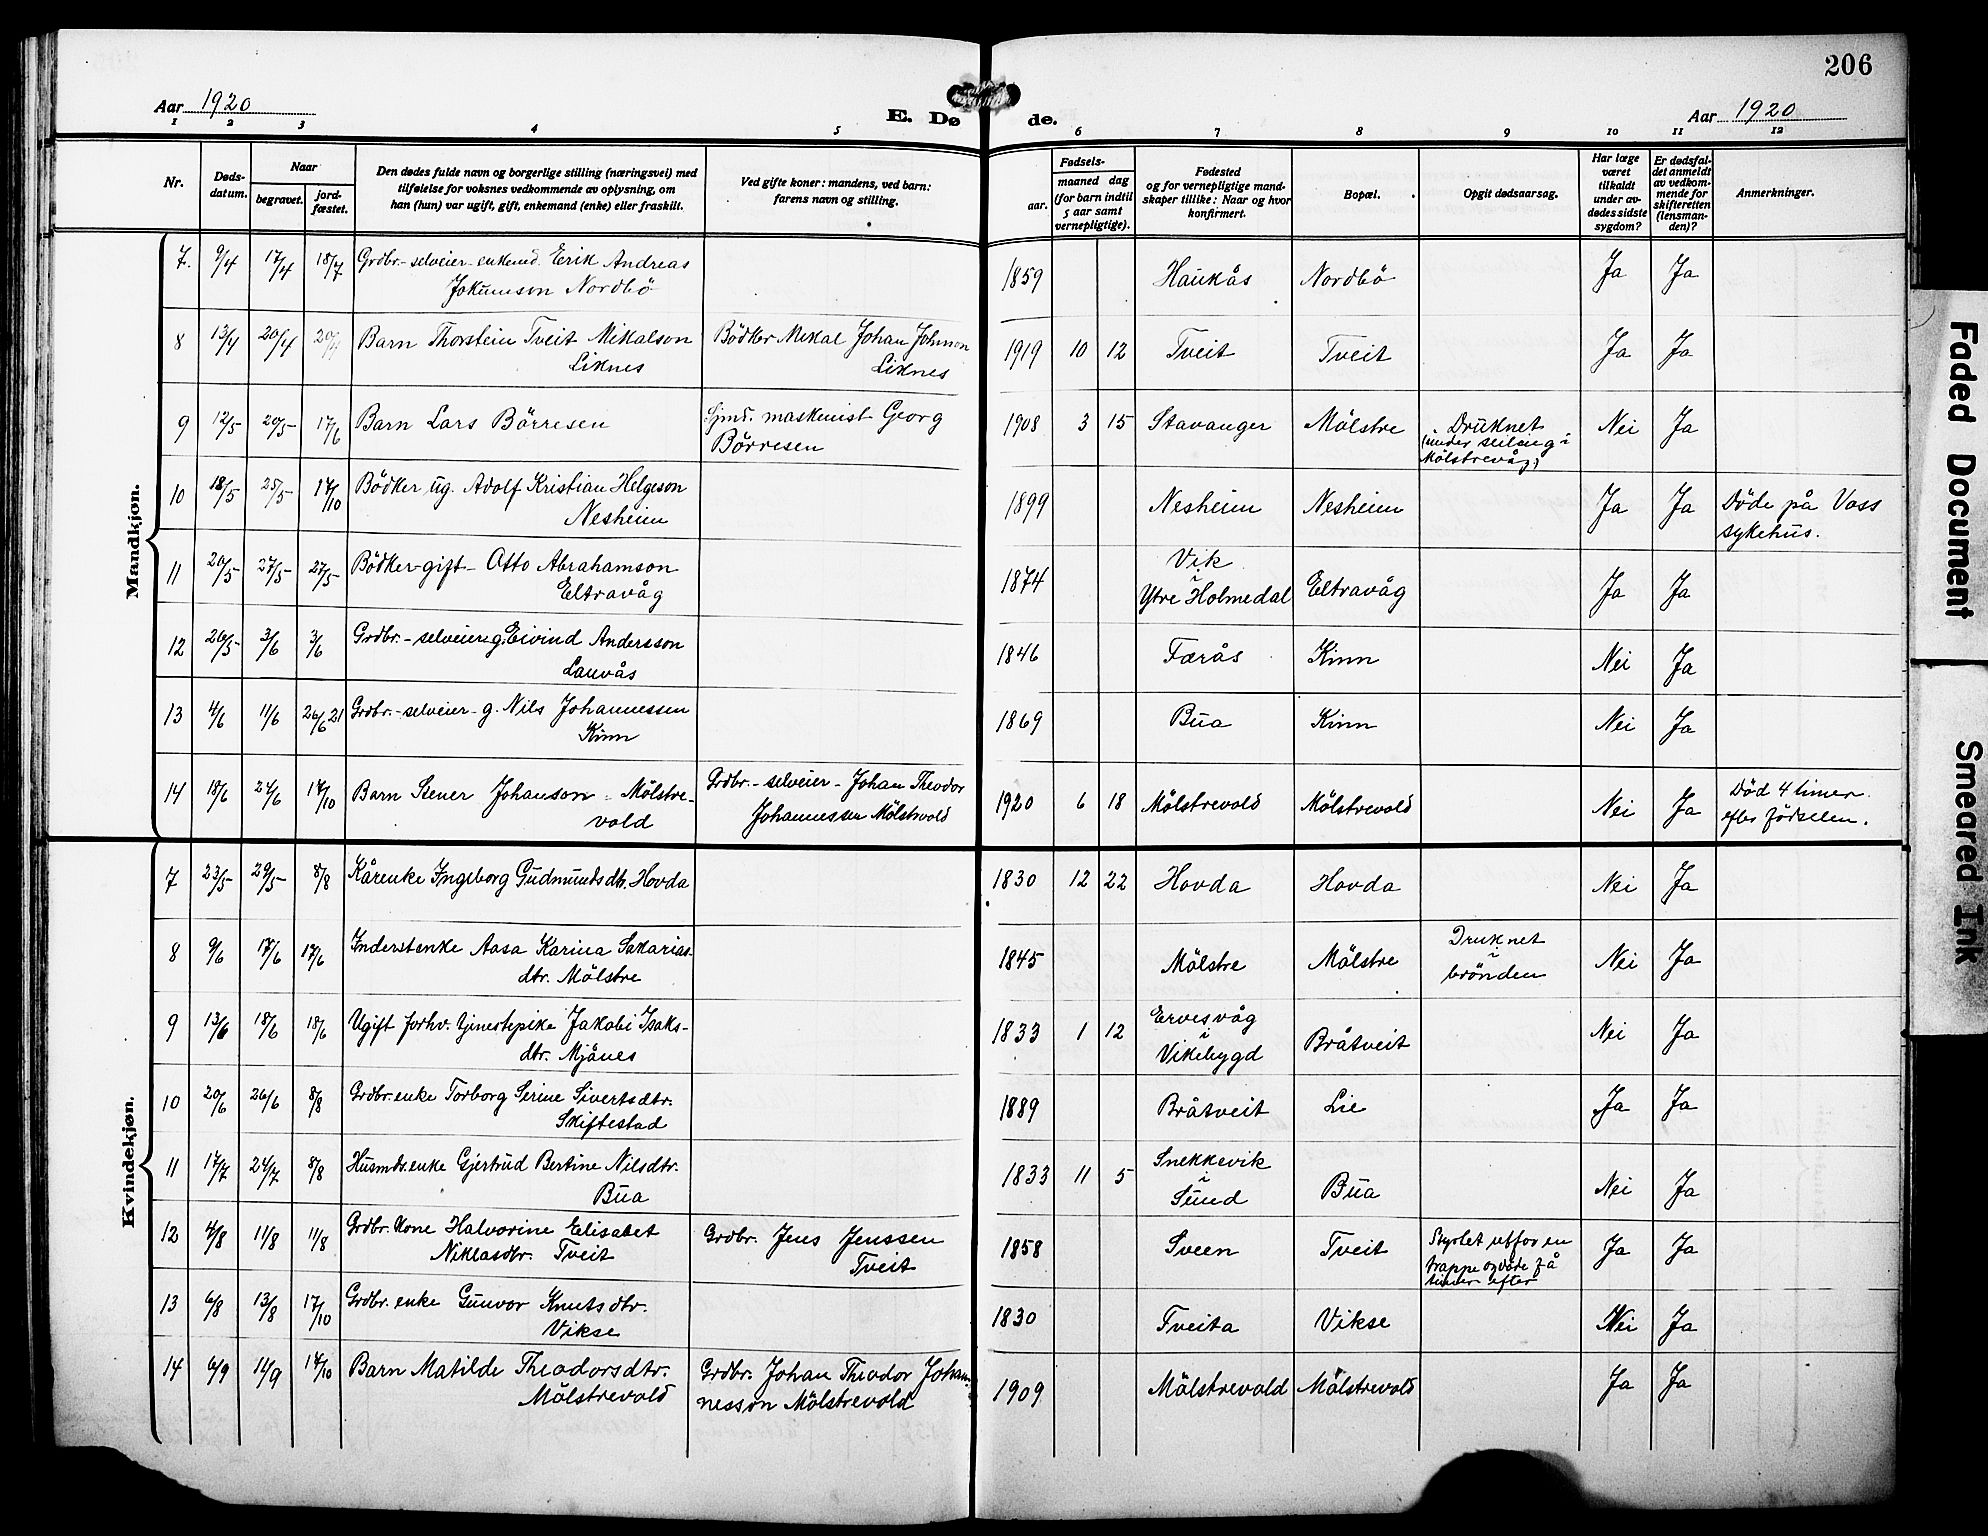 206
Aar 1920
E. Dø de.
Aar 1920
1 2 3 4 5 6 7 8 9 10 11 12
Nr.
Døds-
datum.
Naar
begravet.
jord-
fæstet.
Den dødes fulde navn og borgerlige stilling (næringsvei) med
tilføielse for voksnes vedkommende av oplysning, om
han (hun) var ugift, gift, enkemand (enke) eller fraskilt.
Ved gifte koner: mandens, ved barn:
farens navn og stilling.
Fødsels-
aar.
maaned dag
(for barn indtil
5 aar samt
vernepligtige).
Fødested
og for vernepligtige mand-
skaper tillike: Naar og hvor
konfirmert.
Bopæl.
Opgit dødsaarsag.
Har læge
været
tilkaldt
under av-
dødes sidste
sygdom?
Er dødsfal-
det anmeldt
av vedkom-
mende for
skifteretten
(lensman-
den)?
Anmerkninger.
Mandkjøn.
7. 9/4 17/4 18/7 Grdbr.-selveier-enkemd. Erik Andreas 1859 Haukås Nordbö Ja Ja
Jokumson Nordbö
8 13/4 20/4 20/4 Barn Thorstein Tveit Mikalson Bödker Mikal Johan Johnson 1919 10 12 Tveit Tveit Ja Ja
Liknes Liknes
9 12/5 20/5 17/6 Barn Lars Börresen Sjmd. maskinist Georg 1908 3 15 Stavanger Mölstre Druknet Nei Ja
Börresen (under seiling i
Mölstrevåg)
10 18/5 25/5 17/10 Bödker ug. Adolf Kristian Helgeson 1899 Nesheim Nesheim Ja Ja Döde på Voss
Nesheim sykehus.
11 20/5 27/5 27/5 Bödker-gift- Otto Abrahamson 1874 Vik Eltravåg Ja Ja
Eltravåg i
Ytre Holmedal
12 26/5 3/6 3/6 Grdbr.-selveier g. Eivind Andersson 1846 Færås Kinn Nei Ja
Lauvås
13 4/6 11/6 26/6 21 Grdbr.-selveier-g. Nils Johannessen 1869 Bua Kinn Nei Ja
Kinn
14 18/6 24/6 17/10 Barn Stener Johanson Mölstre- Grdbr.-selveier-Johan Theodor 1920 6 18 Mölstrevold Mölstrevold Nei Ja Död 4 timer
vold Johannessen Mölstrvold efter födselen.
Kvindekjøn.
7 23/5 29/5 8/8 Kårenke Ingeborg Gudmundsdtr. Hovda 1830 12 22 Hovda Hovda Nei Ja
8 9/6 17/6 17/6 Inderstenke Aasa Karina Sakarias- 1845 Mölstre Mölstre Druknet Nei Ja
dtr. Mölstre i
brönden
9 13/6 18/6 18/6 Ugift forhv. tjenestepike Jakobi Isaks- 1833 1 12 Ervesvåg Bråtveit Nei Ja
dtr. Mjånes i
Vikebygd
10 20/6 26/6 8/8 Grdbr.enke Torborg Serine Sivertsdtr. 1889 Bråtveit Lie Ja Ja
Skiftestad
11 17/7 24/7 8/8 Husmds.enke Gjertrud Bertine Nilsdtr. 1833 11 5 Snekkevik Bua Nei Ja
Bua i
Sund
12 4/8 11/8 11/8 Grdbr.kone Halvorine Elisabet Grdbr. Jens Jenssen 1858 Sveen Tveit Styrtet utfor en Ja Ja
Niklasdtr. Tveit Tveit trappe og döde få
timer efter
13 6/8 13/8 17/10 Grdbr.enke Gunvor Knutsdtr. 1830 Tveita Vikse Nei Ja
Vikse
14 6/9 11/9 17/10 Barn Matilde Theodorsdtr. Grdbr. Johan Theodor Johan- 1909 Mölstrevold Mölstrevold Ja Ja
Mölstrevold nesson Mölstrevold
Faded Document
Smeared Ink